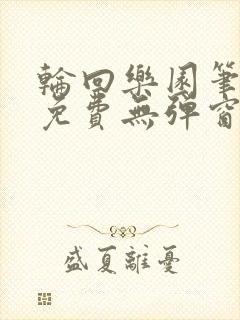 輪回樂園筆
免費無彈窗
盛夏離憂